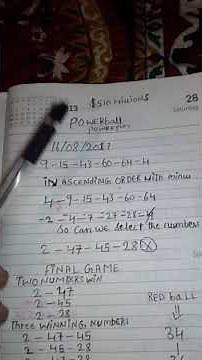 13 $510 Millions 28
POWERball
POWERPLAY
16/08/2017
9-15-43-60-64-4
IN ASCENDING ORDER WITH minus
4-9-15-43-60-64
-2-4-7-27-28-4
So can we select the numbers
2-47-45-28 X
FINAL GAME
TWO NUMBERS WIN
2-47
2-45
2-28
RED ball
Three WINNING NUMBERS
2-47-45
34
2-45-28